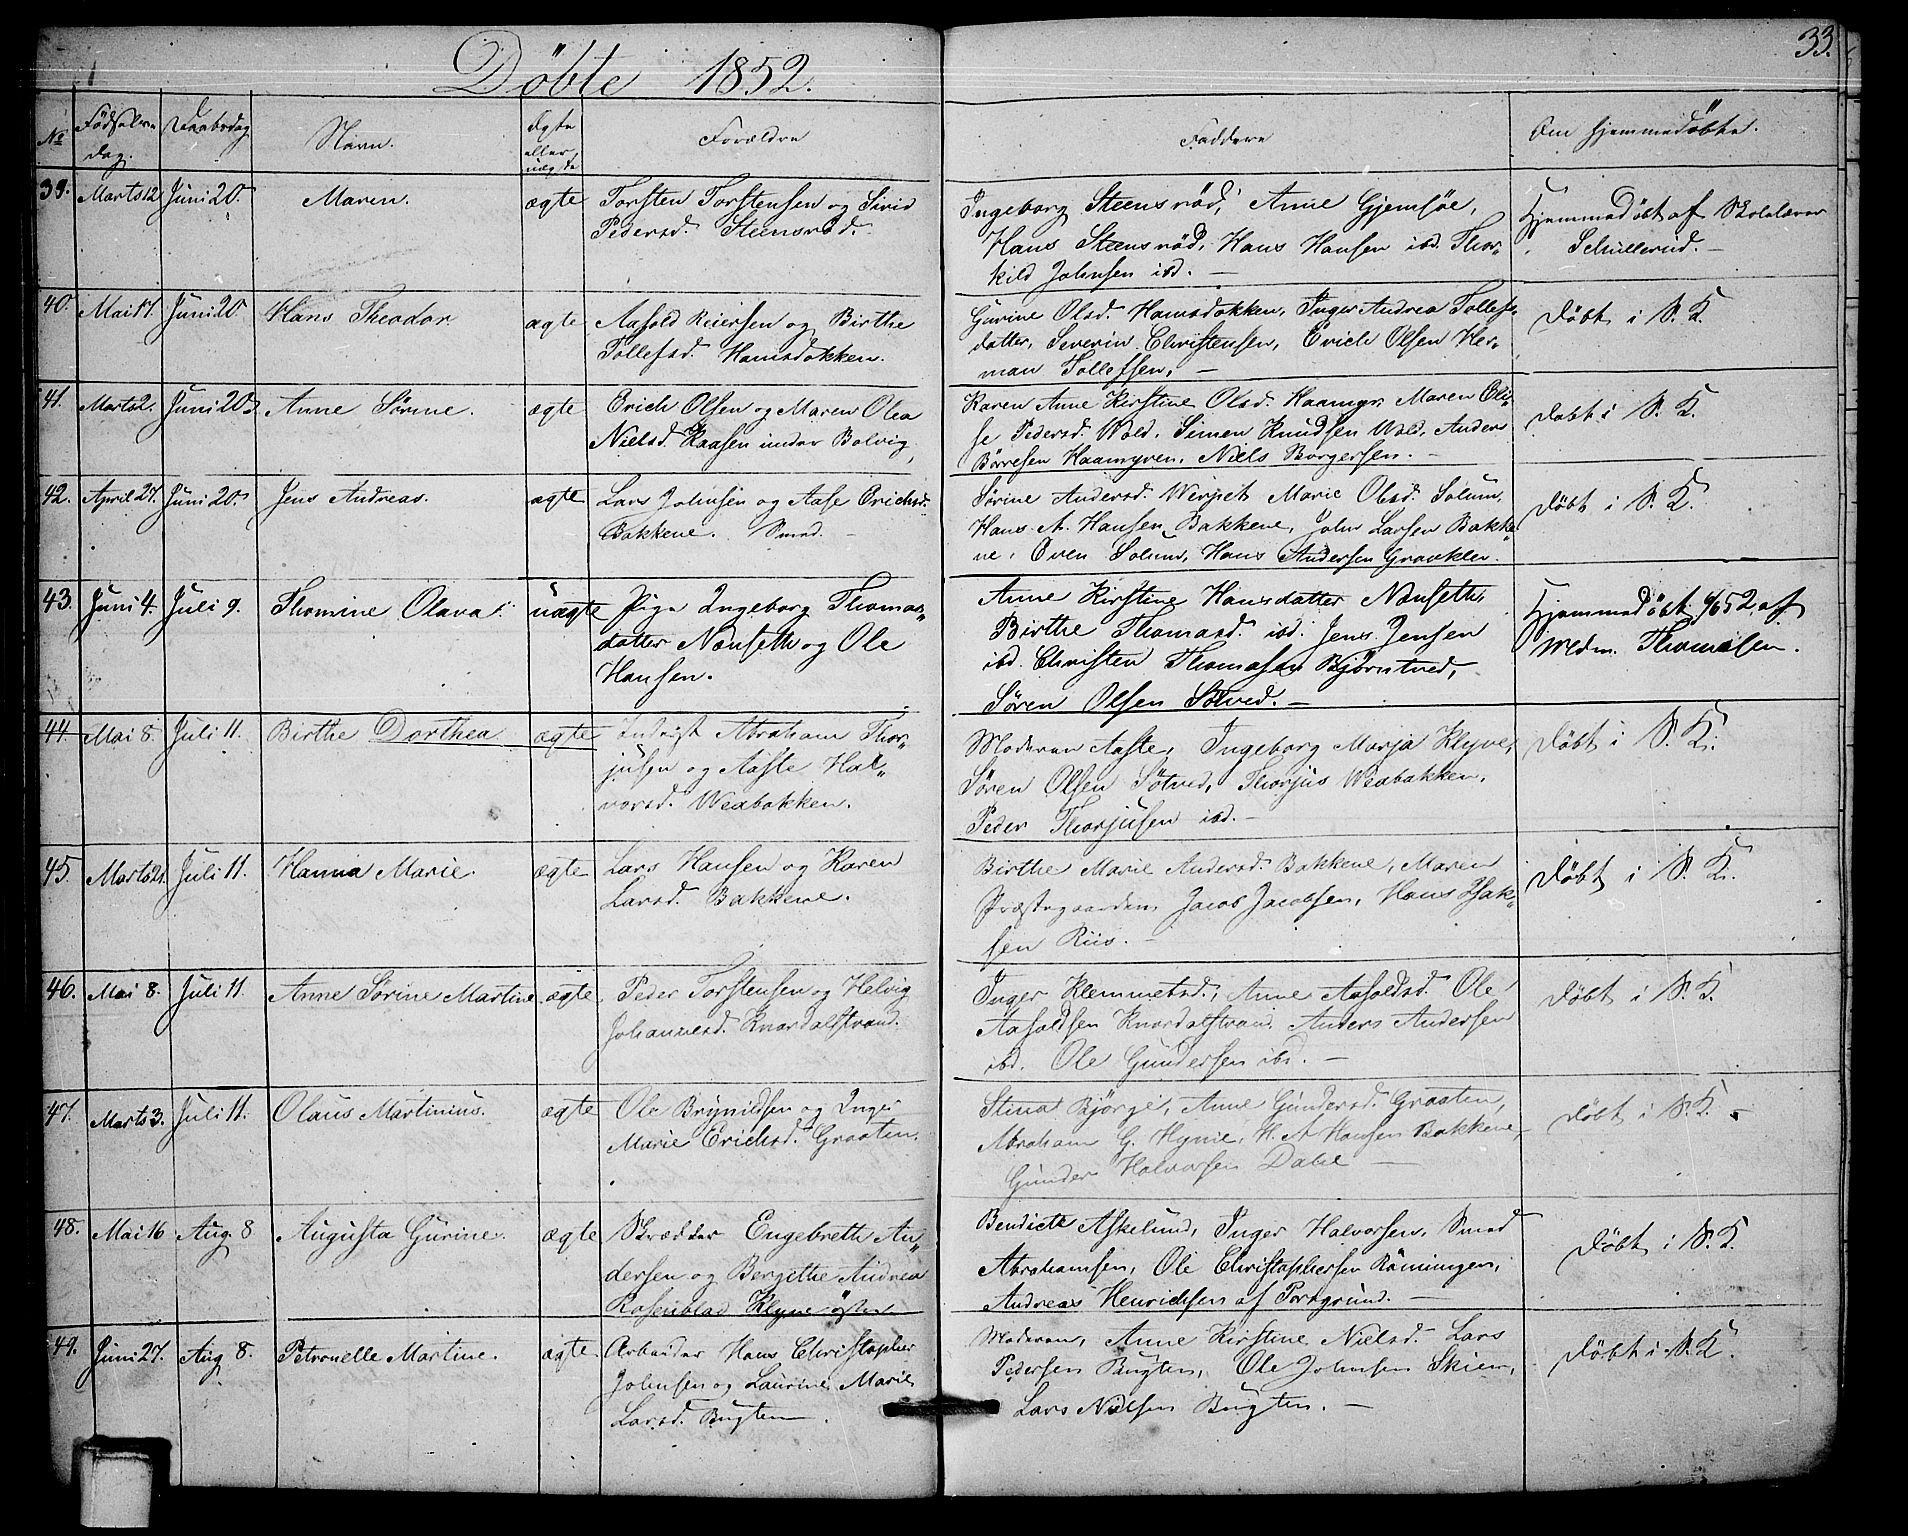 Döbte 1852.
33.
No
Fødselsdag.
Daabsdag
Navn.
Ægte eller uægte
Forældre
Faddere
Om hjemmedöbte.
39. Marts 12 Juni 20. Maren. ægte Torsten Torstensen og Sivid
Pedersd. Steensrød.
Ingeborg Steensrød, Anne Gjemsøe,
Hans Steensrød, Hans Hansen ibd. Thor-
kild Johnsen ibd. —
Hjemmedöbt af Skolelærer
Schullerud. —
40. Mai 17. Juni 20 Hans Theodor ægte Aasold Reiersen og Birthe
Tollefsd. Hamsdokken.
Gurine Olsd. Hamsdokken, Inger Andrea Tollefs-
datter, Severin Christensen, Erich Olsen Her-
man Tollefsen, —
Döbt i S. K.
41. Marts 2. Juni 20. Anne Sørine. ægte Erich Olsen og Maren Olea
Nielsd. Kaasen under Bolvig,
Karen Anne Kirstine Olsd. Haamyr, Maren Eli-
se Pedersd. Wold. Simen Knudsen Wold, Anders
Börresen Haamyren, Niels Borgersen. —
Döbt i S. K.
42. April 27. Juni 20. Jens Andreas. ægte Lars Johnsen og Aase Erichsd.
Bakkene. Smed. —
Sørine Andersd. Marie Olsd. Solum,
Hans A. Hansen Bakkene, John Larsen Bakke-
ne, Even Solum, Hans Andersen Graaklev.
Döbt i S. K.
43. Juni 4. Juli 9. Thomine Olava. uægte Pige Ingeborg Thomas-
datter Nenseth og Ole
Hansen.
Anne Kirstine Hansdatter Nenseth,
Birthe Thomasd. ibd. Jens Jensen
ibd. Christen Thomasen Bjørntved,
Søren Olsen Søtved. —
Hjemmedöbt 4/6 52 af
Mdm. Thomesen.
44. Mai 8. Juli 11. Birthe Dorthea ægte Inderst Abraham Thor-
jusen og Aaste Hal-
vorsd. Wexbakken.
Moderen Aaste, Ingeborg Marja Klyve,
Søren Olsen Søtved, Thorjus Wexbakken,
Peder Thorjusen ibd. —
Döbt i S. K.
45. Marts 21. Juli 11. Hanna Marie. ægte Lars Hansen og Karen
Larsd. Bakkene.
Birthe Marie Andersd. Bakkene, Maren
Præstegaarden, Jacob Jacobsen, Hans Isak-
sen Riis. —
Döbt i S. K.
46. Mai 8. Juli 11. Anne Sørine Martine ægte Peder Torstensen og Helvig
Johannesd. Knardalstrand.
Inger Klemmetsd., Anne Aasoldsd. Ole
Aasoldsen Knardalstrand, Anders Andersen
ibd. Ole Gundersen ibd. —
Döbt i S. K.
47. Marts 3. Juli 11. Olaus Martinius. ægte Ole Brynildsen og Inger
Marie Erichsd. Graaten.
Stina Bjørge, Anne Gundersd. Graaten,
Abraham G. Hynie, H. A Hansen Bakkene,
Gunder Halvorsen Dahl —
Döbt i S. K. —
48. Mai 16 Aug. 8 Augusta Gurine. ægte Skrædder Engebreth An-
dersen og Bergithe Andrea
Rosenblad Klyve östre
Bendicte Askelund, Inger Halvorsen, Smed
Abrahamsen, Ole Christophersen Rönningen,
Andreas Henrichsen af Porsgrund. —
Döbt i S. K.
49. Juni 27. Aug 8. Petronelle Martine. ægte. Arbeider Hans Christopher
Johnsen og Laurine Marie
Larsd. Bugten.
Moderen, Anne Kirstine Nielsd. Lars
Pedersen Bugten, Ole Johnsen Skien,
Lars Nielsen Bugten. —
Döbt i S. K.